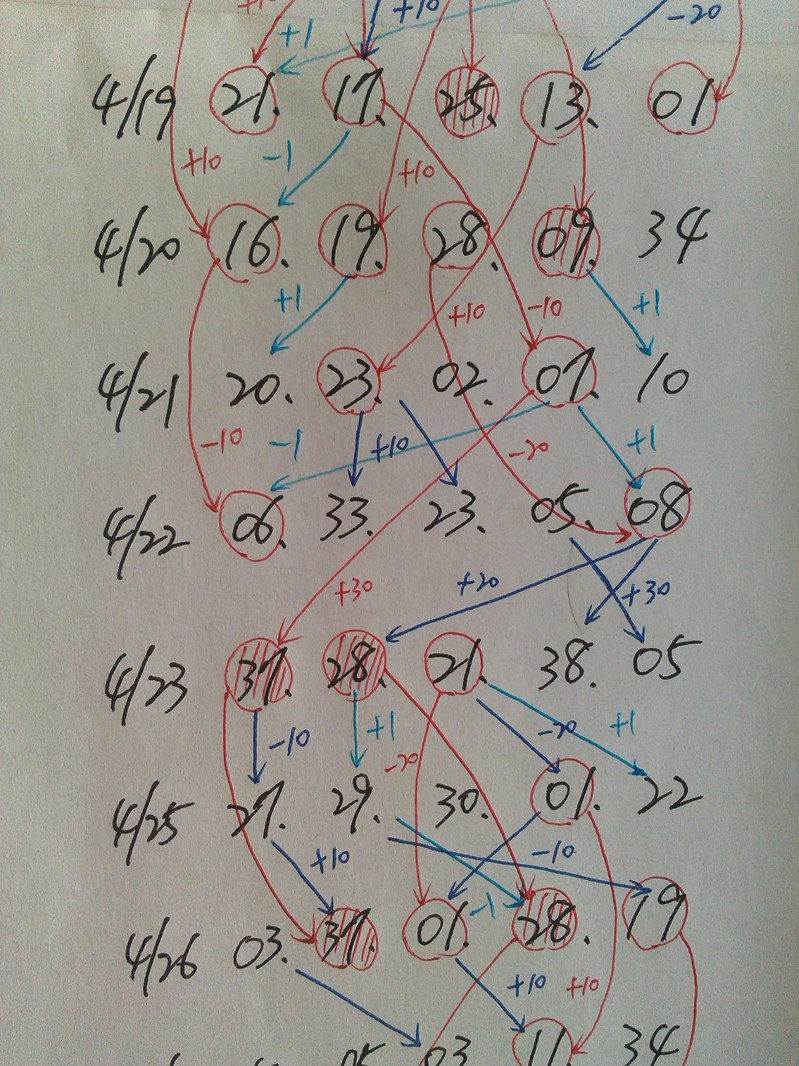 +10 +10 -20
+1
4/19 21. 17. 25. 13. 01
+10 -1 +10
4/20 16. 19. 28. 09. 34
+1 +10 -10 +1
4/21 20. 23. 02. 07. 10
-10 -1 +10 -20 +1
4/22 06. 33. 23. 05. 08
+30 +20 +30
4/23 37. 28. 21. 38. 05
-10 +1 -20 -20 +1
4/25 27. 29. 30. 01. 22
+10 -10
-1
4/26 03. 37. 01. 28. 19
+10 +10
03. 11. 34